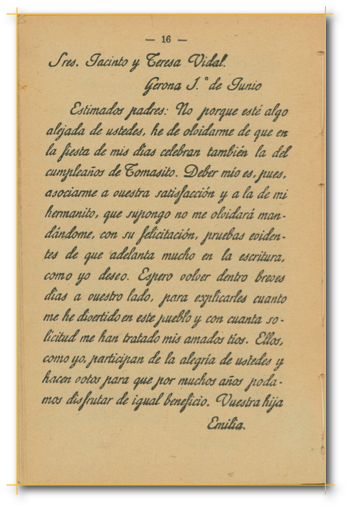 — 16 —
Sres. Jacinto y Teresa Vidal.
Gerona 1.º de Junio
Estimados padres: No porque esté algo
alejada de ustedes, he de olvidarme de que en
la fiesta de mis días celebran también la del
cumpleaños de Tomasito. Deber mío es, pues,
asociarme a vuestra satisfacción y a la de mi
hermanito, que supongo no me olvidará man-
dándome, con su felicitación, pruebas eviden-
tes de que adelanta mucho en la escritura,
como yo deseo. Espero volver dentro breves
días a vuestro lado, para explicarles cuanto
me he divertido en este pueblo y con cuanta so-
licitud me han tratado mis amados tíos. Ellos,
como yo, participan de la alegría de ustedes y
hacen votos para que por muchos años poda-
mos disfrutar de igual beneficio. Vuestra hija
Emilia.